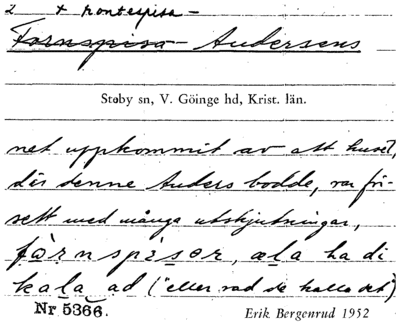 2 + Kontespisa -
Fornspisa - Andersens
Støby sn, V. Göinge hd, Krist. län.
net uppkommit av att huset,
där denne Anders bodde, var för-
sett med många utskjutningar,
fàrnspisor, æla ha di
kala ad ("eller vad de kalla det)
Nr 5366.
Erik Bergenrud 1952